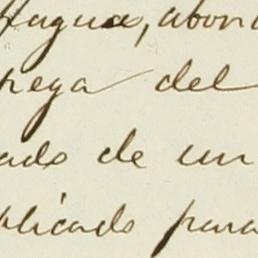 agua, abon
rega del
ado de un
plicado para